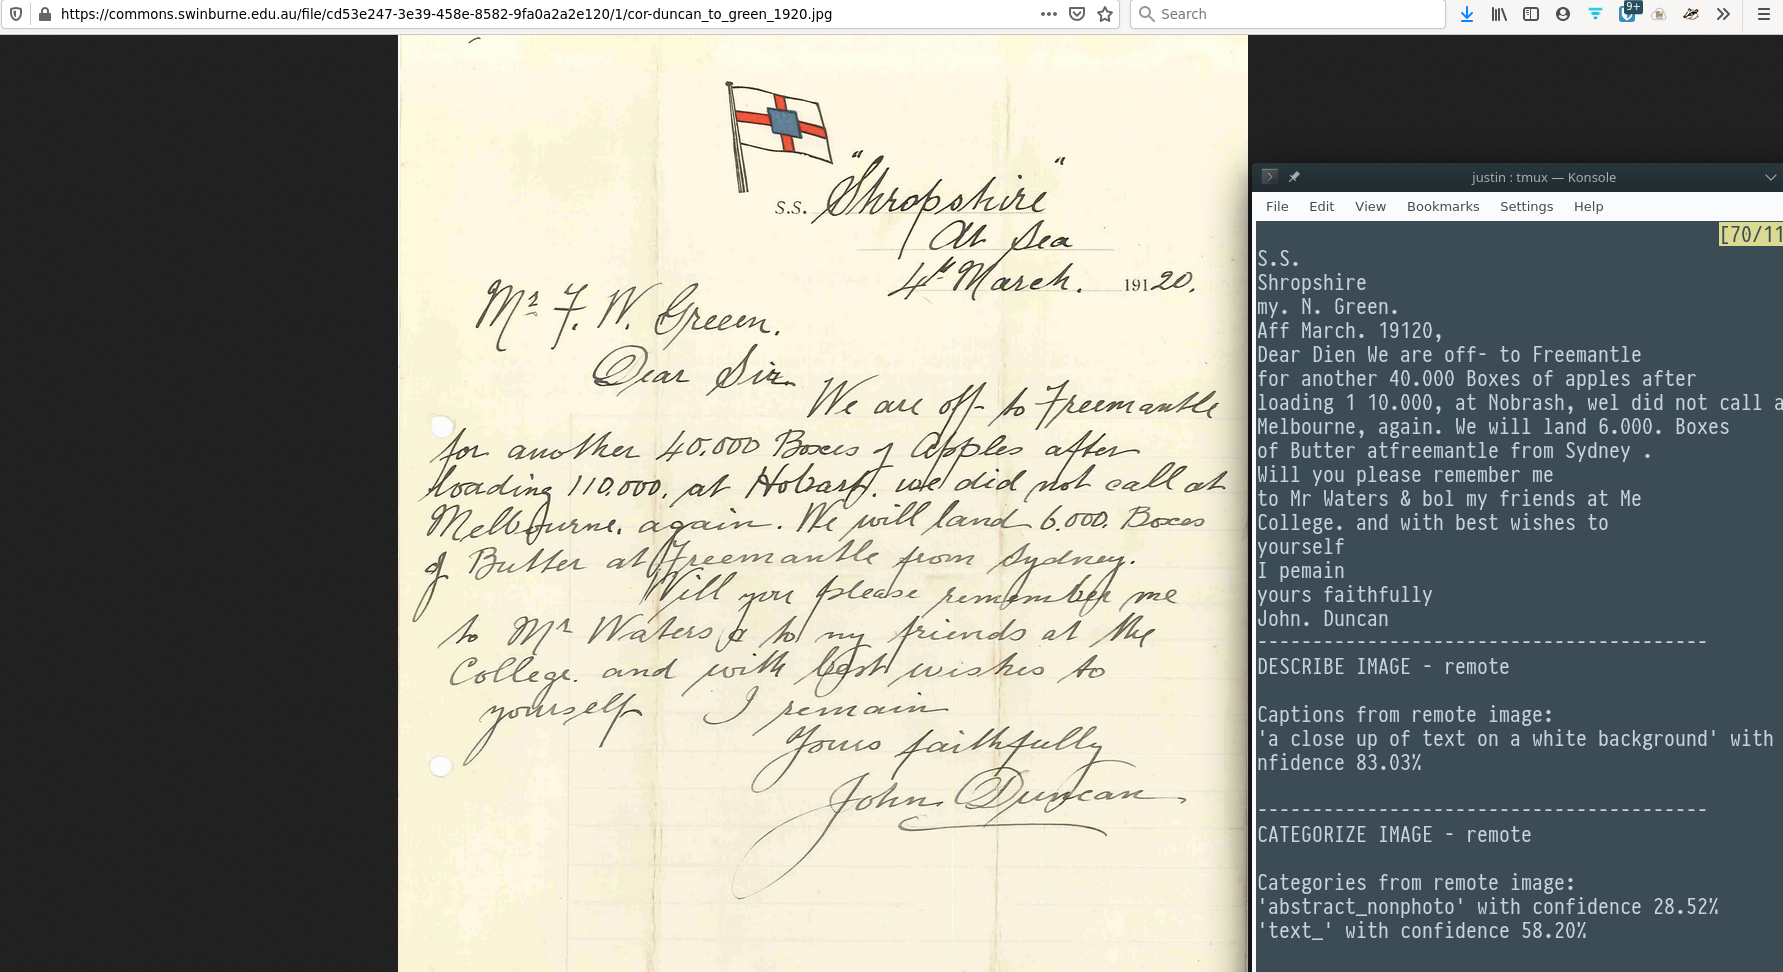 https://commons.swinburne.edu.au/file/cd53e247-3e39-458e-8582-9fa0a2a2e120/1/cor-duncan_to_green_1920.jpg
Search
9+
S.S. "Shropshire"
At Sea
4th March. 19120.
Mr F. W. Greeen.
Dear Sir.
We are off- to Freemantle
for another 40.000 Boxes of Apples after
loading 110.000. at Hobart. we did not call at
Melbourne. again. We will land 6.000. Boxes
of Butter at Freemantle from Sydney.
Will you please remember me
to Mr Waters & to my friends at the
College. and with best wishes to
yourself I remain
Yours faithfully
John Duncan
justin : tmux — Konsole
File Edit View Bookmarks Settings Help
[70/11
S.S.
Shropshire
my. N. Green.
Aff March. 19120,
Dear Dien We are off- to Freemantle
for another 40.000 Boxes of apples after
loading 1 10.000, at Nobrash, wel did not call a
Melbourne, again. We will land 6.000. Boxes
of Butter atfreemantle from Sydney .
Will you please remember me
to Mr Waters & bol my friends at Me
College. and with best wishes to
yourself
I pemain
yours faithfully
John. Duncan
-----------------------------------------
DESCRIBE IMAGE - remote
Captions from remote image:
'a close up of text on a white background' with
nfidence 83.03%
-----------------------------------------
CATEGORIZE IMAGE - remote
Categories from remote image:
'abstract_nonphoto' with confidence 28.52%
'text_' with confidence 58.20%